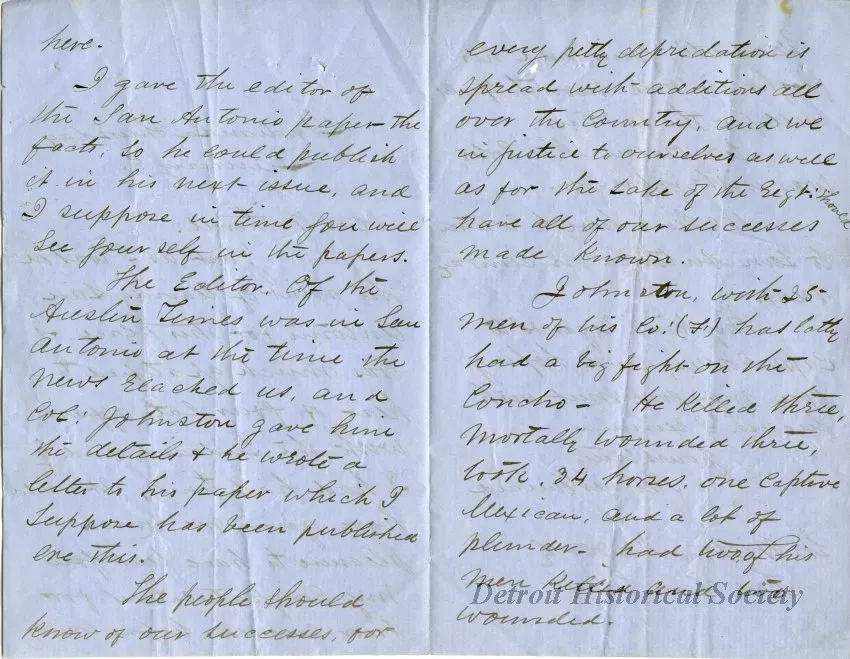 here.
I gave the editor of
the San Antonio paper the
facts, so he could publish
it in his next issue, and
I suppose in time you will
see yourself in the papers.
The Editor, Of the
Austin Times was in San
Antonio at the time the
news reached us, and
Col. Johnston gave him
the details & he wrote a
letter to his paper which I
suppose has been published
ere this.
The people should
know of our successes, for
every petty depredation is
spread with additions all
over the Country, and we
in justice to ourselves as well
as for the sake of the Regt. should
have all of our successes
made known.
Johnston, with 25
men of his Co. (F.) has latly
had a big fight on the
Concho - He killed three,
mortally wounded three,
took, 34 horses, one captive
Mexican, and a lot of
plunder - had two of his
men killed and two
wounded.
Detroit Historical Society